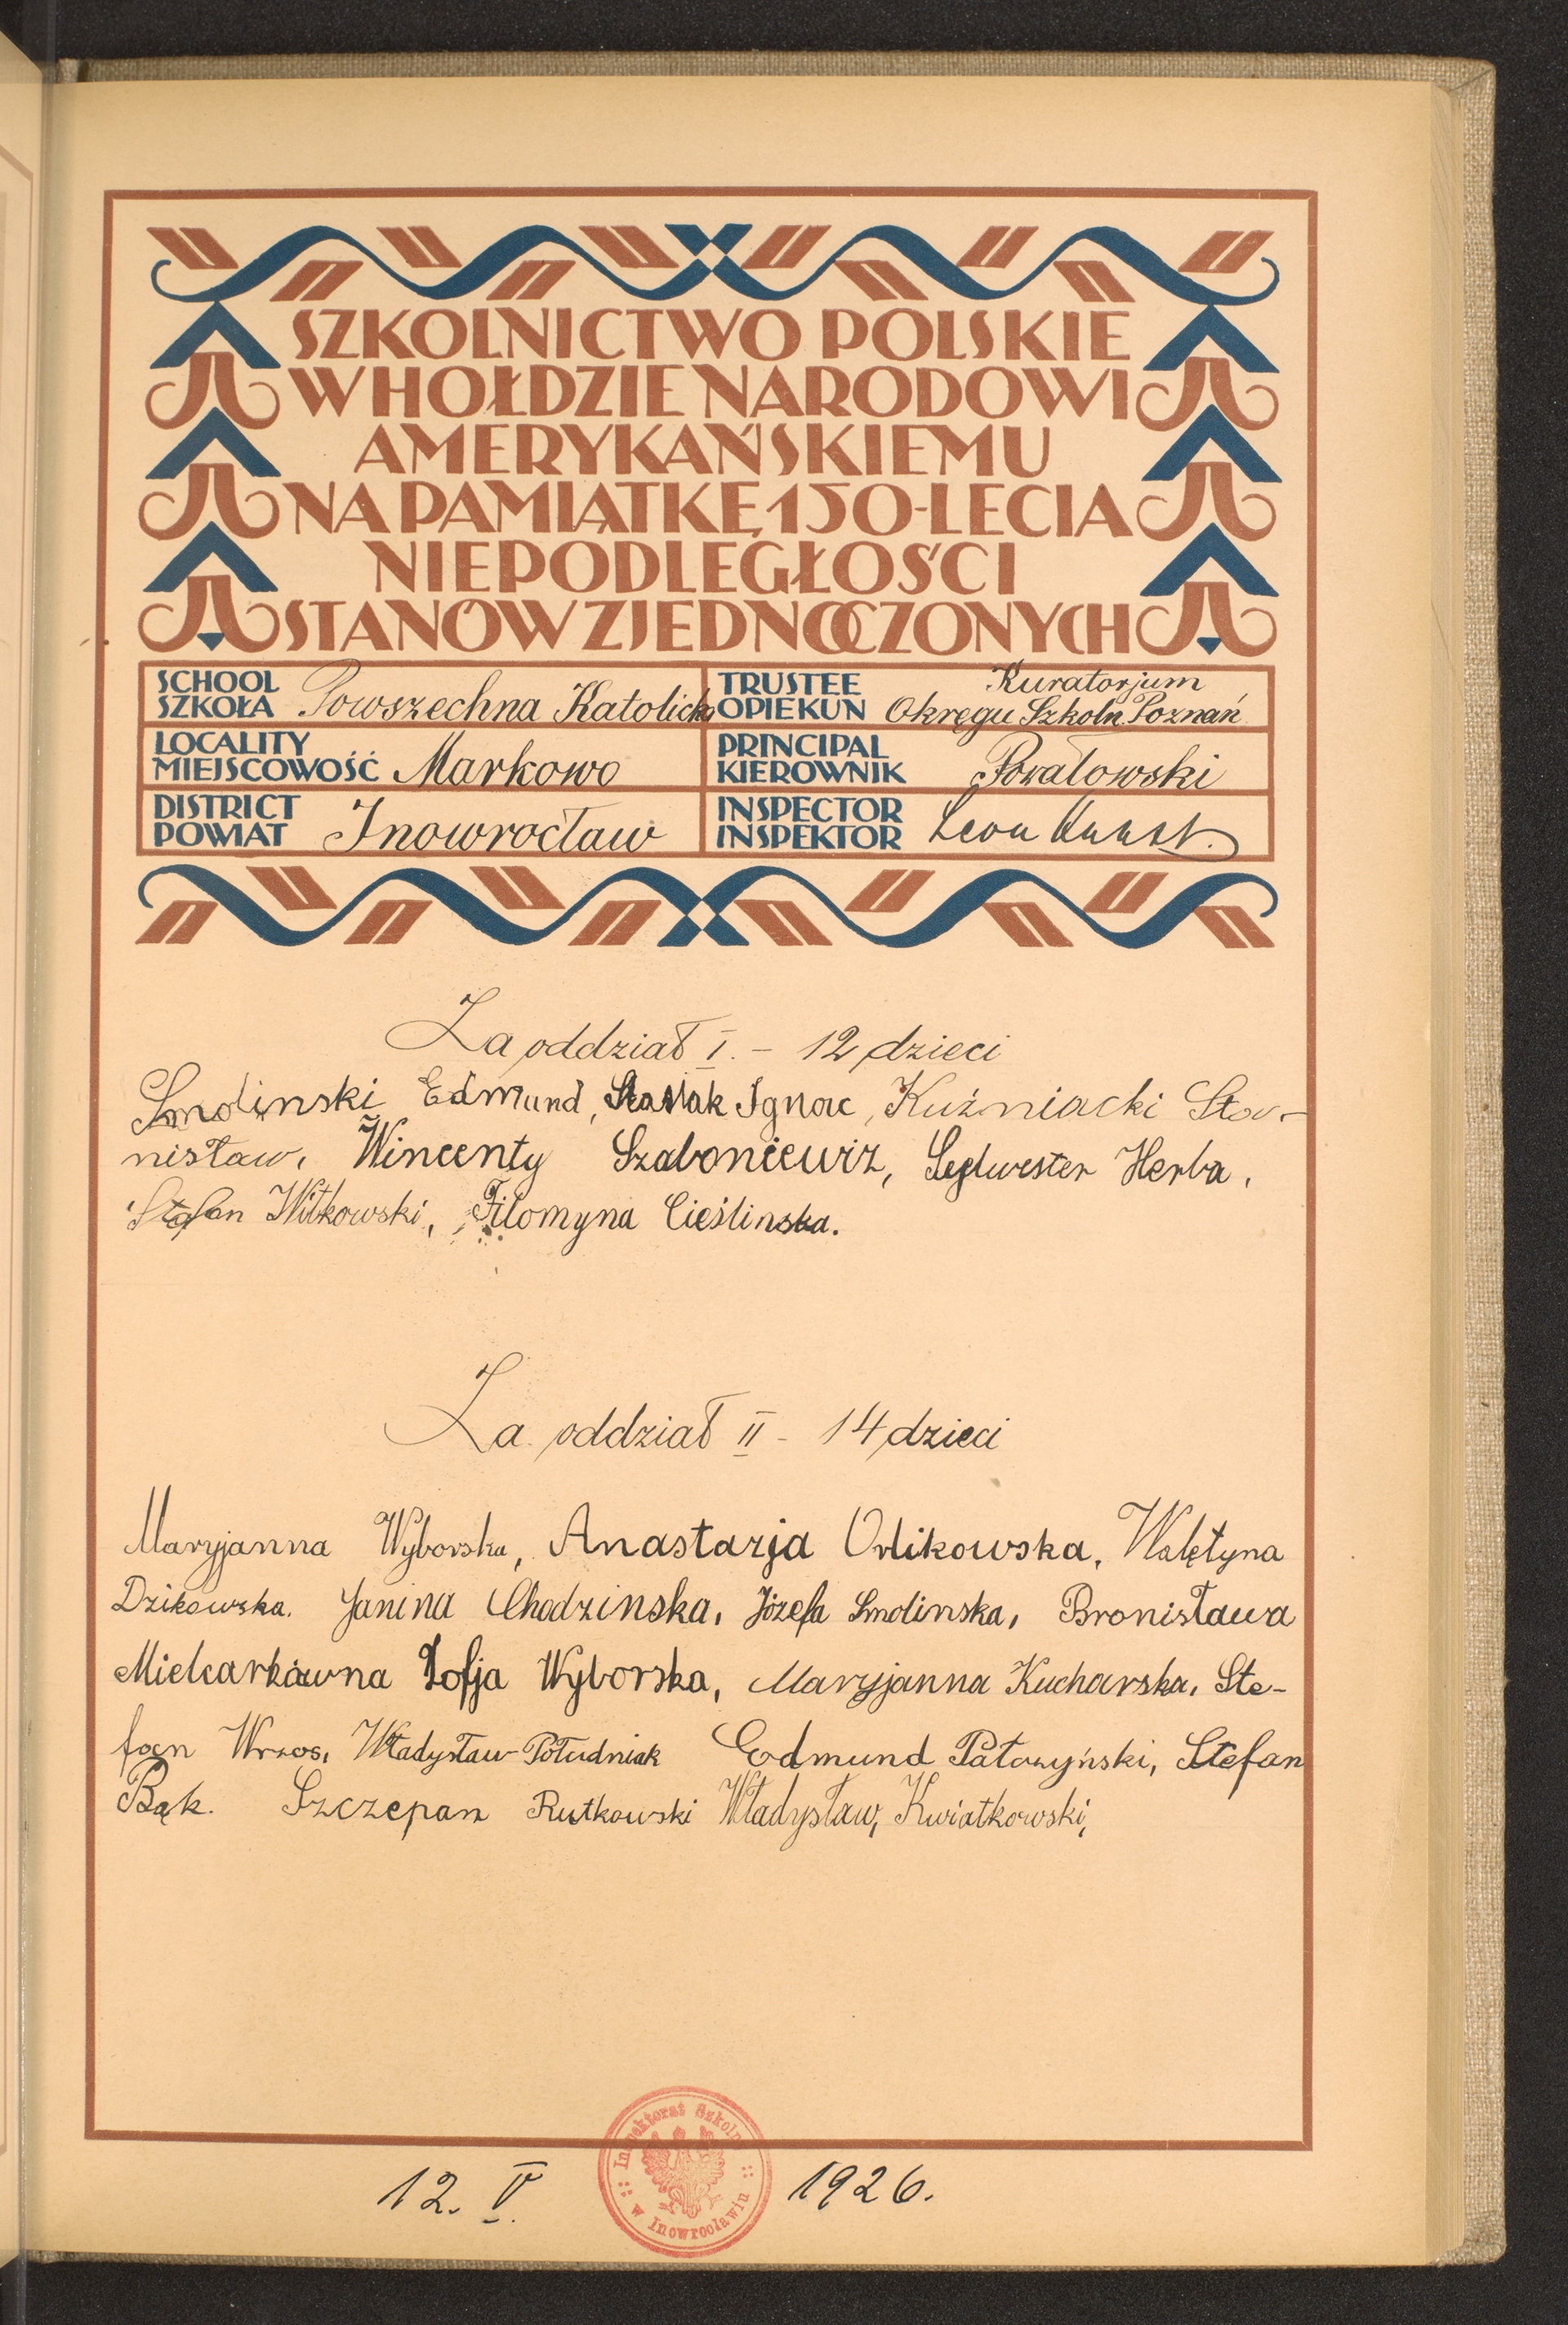 SZKOLNICTWO POLSKIE
W HOŁDZIE NARODOWI
AMERYKAŃSKIEMU
NA PAMIĄTKĘ 150-LECIA
NIEPODLEGŁOŚCI
STANÓW ZJEDNOCZONYCH
SCHOOL
SZKOŁA Powszechna Katolicka
TRUSTEE
OPIEKUN Kuratorjum
Okręgu Szkoln. Poznań
LOCALITY
MIEJSCOWOŚĆ Markowo
PRINCIPAL
KIEROWNIK Powałowski
DISTRICT
POWIAT Inowrocław
INSPECTOR
INSPEKTOR Leon
Za oddział I. - 12 dzieci
Smolinski Edmund, Stasiak Ignac, Kuźniacki Sta-
nisław, Wincenty Szaboniewiz, Sylwester Herba,
Stefan Witkowski, Filomyna Cieślinska.
Za oddział II - 14 dzieci
Maryjanna Wyborska, Anastazja Orlikowska, Walętyna
Dzikowska. Janina Chodzinska, Józefa Smolinska, Bronisława
Mielcarkówna Zofja Wyborska, Maryjanna Kucharska, Ste-
fan Wrzos, Władysław Południak Edmund Pałczyński, Stefan
Bąk. Szczepan Rutkowski Władysław, Kwiatkowski,
Inspektorat Szkoln
w Inowrocławiu
12. V. 1926.